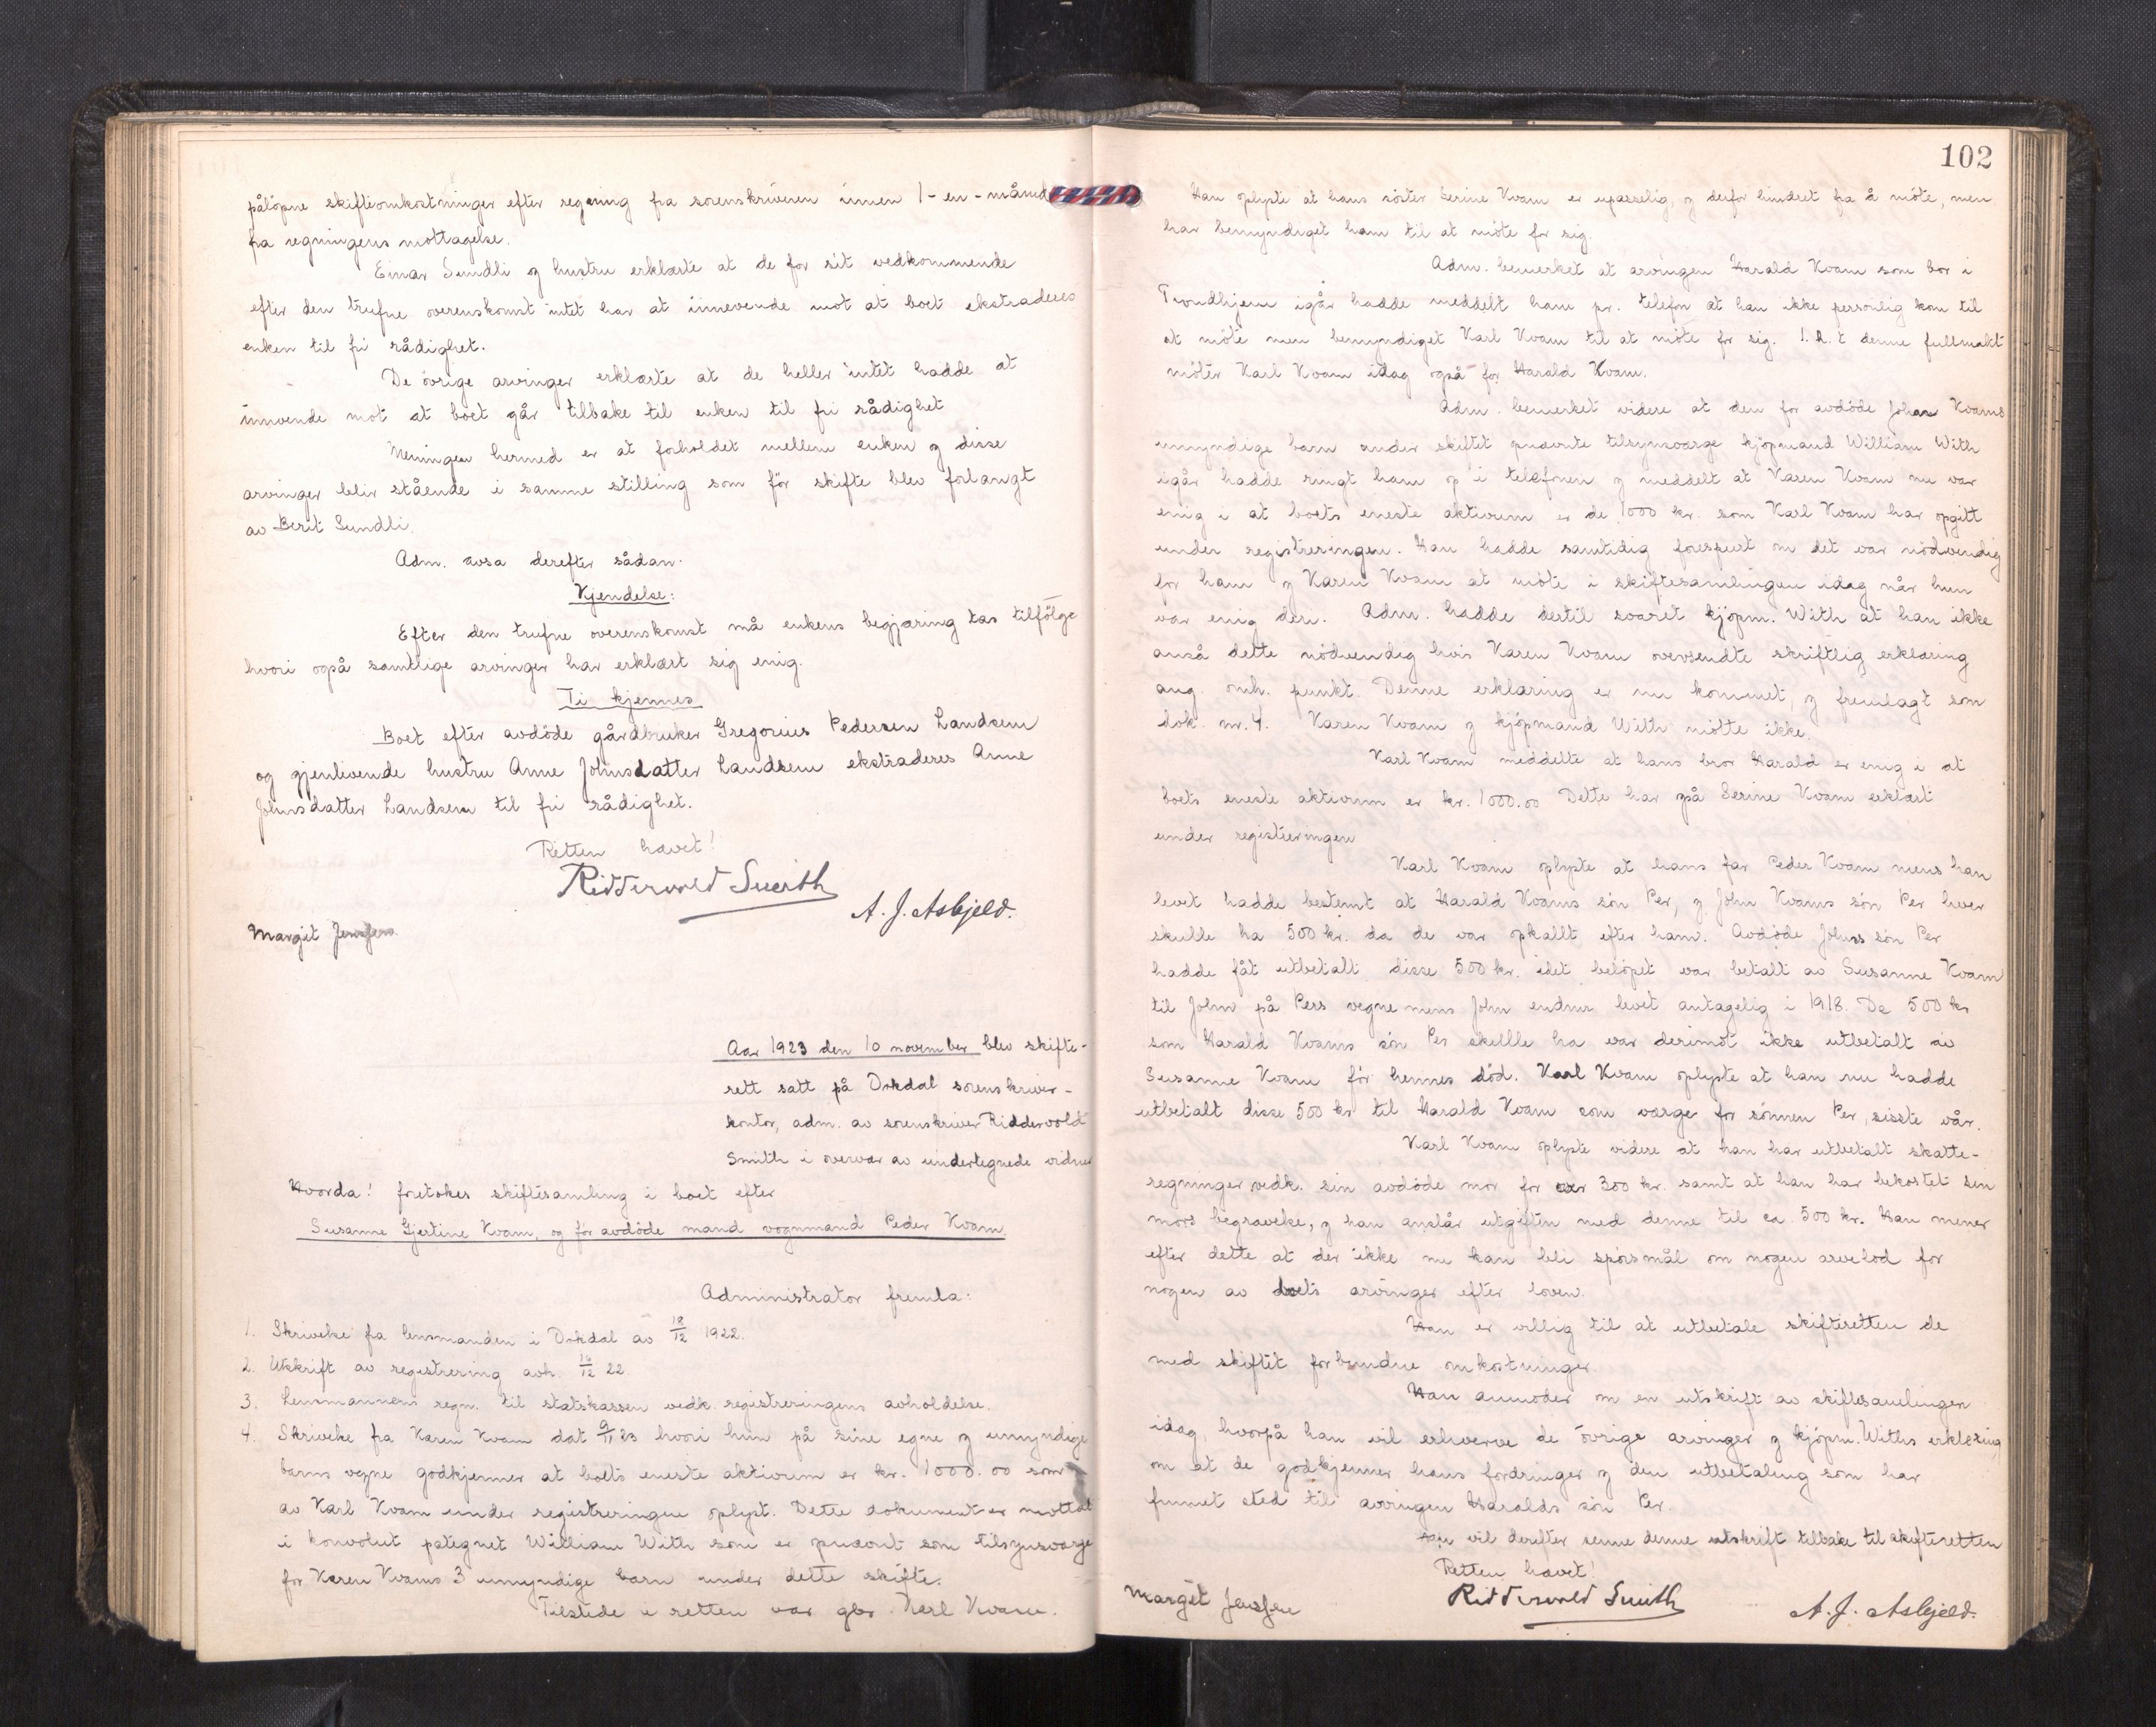 påløpne skifteomkostninger efter regning fra sorenskriveren innen 1-en-måned
fra regningens mottagelse.
Einar Sundli og hustru erklærte at de for sit vedkommende
efter den trufne overenskomst intet har at innevende mot at boet ekstraderes
enken til fri rådighet.
De øvrige arvinger erklærte at de heller intet hadde at
innvende mot at boet går tilbake til enken til fri rådighet
Meningen hermed er at forholdet mellem enken og disse
arvinger blir stående i samme stilling som før skifte blev forlangt
av Berit Sundli.
Adm. avsa derefter sådan.
Kjendelse:
Efter den trufne overenskomst må enkens begjæring tas tilfølge
hvori også samtlige arvinger har erklært sig enig.
Ti kjennes
Boet efter avdøde gårdbruker Gregorius Pedersen Landsem
og gjenlevende hustru Anne Johnsdatter Landsem ekstraderes Anne
Johnsdatter Landsem til fri rådighet.
Retten hævet!
Riddervold Smith
A. J. Asbjeld.
Margit
Aar 1923 den 10 november blev skifte-
rett satt på Orkdal sorenskriver-
kontor, adm. av sorenskriver Riddervold
Smith i overvær av undertegnede vidner
Hvorda! foretokes skiftesamling i boet efter
Susanne Gjertine Kvam, og før avdøde mand vognmand Peder Kvam
Administrator fremla:
1. Skrivelse fra lensmanden i Orkdal av 18/12 1922.
2. Utskrift av registrering avh. 16/12 22
3. Lensmannens regn. til statskassen vedk. registreringens avholdelse.
4. Skrivelse fra Karen Kvam dat 9/11 23 hvori hun på sine egne og umyndige
barns vegne godkjenner at boets eneste aktivum er kr. 1000.00 som
av Karl Kvam under registreringen oplyst. Dette dokument er mottat
i konvolut påtegnet William With som er opnævnt som tilsynsværge
for Karen Kvams 3 umyndige barn under dette skifte.
Tilstede i retten var gbr. Karl Kvam.
102
Han oplyste at hans søster Serine Kvam er upasselig, og derfor hindret fra å møte, men
har bemyndiget ham til at møte for sig.
Adm. bemerket at arvingen Harald Kvam som bor i
Trondhjem igår hadde meddelt ham pr. telefon at han ikke personlig kom til
at møte men bemyndiget Karl Kvam til at møte for sig. I.h.t denne fullmakt
møter Karl Kvam idag også for Harald Kvam.
Adm. bemerket videre at den for avdøde Johan Kvams
umyndige barn under skiftet opnævnte tilsynsværge kjøpmand William With
igår hadde ringt ham op i telefonen og meddelt at Karen Kvam nu var
enig i at boets eneste aktivum er de 1000 kr. som Karl Kvam har opgitt
under registreringen. Han hadde samtidig forespurt om det var nødvendig
for ham og Karen Kvam at møte i skiftesamlingen idag når hun
var enig deri. Adm. hadde dertil svaret kjøpm. With at han ikke
anså dette nødvendig hvis Karen Kvam oversendte skriftlig erklæring
ang. omh. punkt. Denne erklæring er nu kommet, og fremlagt som
dok. nr. 4. Karen Kvam og kjøpmand With møtte ikke.
Karl Kvam meddelte at hans bror Harald er enig i at
boets eneste aktivum er kr. 1000.00 Dette har også Serine Kvam erklært
under registreringen
Karl Kvam oplyste at hans far Peder Kvam mens han
levet hadde bestemt at Harald Kvams søn Per, og John Kvams søn Per hver
skulle ha 500 kr. da de var opkallt efter ham. Avdøde Johns søn Per
hadde fåt utbetalt disse 500 kr. idet beløpet var betalt av Susanne Kvam
til John på Pers vegne mens John endnu levet antagelig i 1918. De 500 kr
som Harald Kvams søn Per skullle ha var derimot ikke utbetalt av
Susanne Kvam før hennes død. Karl Kvam oplyste at han nu hadde
utbetalt disse 500 kr til Harald Kvam som værge for sønnen Per, sisste vår.
Karl Kvam oplyste videre at han har utbetalt skatte-
regninger vedk. sin avdøde mor for over 300 kr. samt at han har bekostet sin
mors begravelse, og han anslår utgiften med denne til ca 500 kr. Han mener
efter dette at der ikke nu kan bli spørsmål om nogen arvelod for
nogen av boets arvinger efter loven.
Han er villig til at utbetale skifteretten de
med skiftet forbundne omkostninger.
Han anmoder om en utskrift av skiftesamlingen
idag, hvorpå han vil erhverve de øvrige arvinger og kjøpm. Withs erklæring
om at de godkjenner hans fordringer og den utbetaling som har
funnet sted til arvingen Haralds søn Per.
Han vil derefter senne denne utskrift tilbake til skifteretten
Retten hævet!
Margit
Riddervold Smith
A. J. Asbjeld.